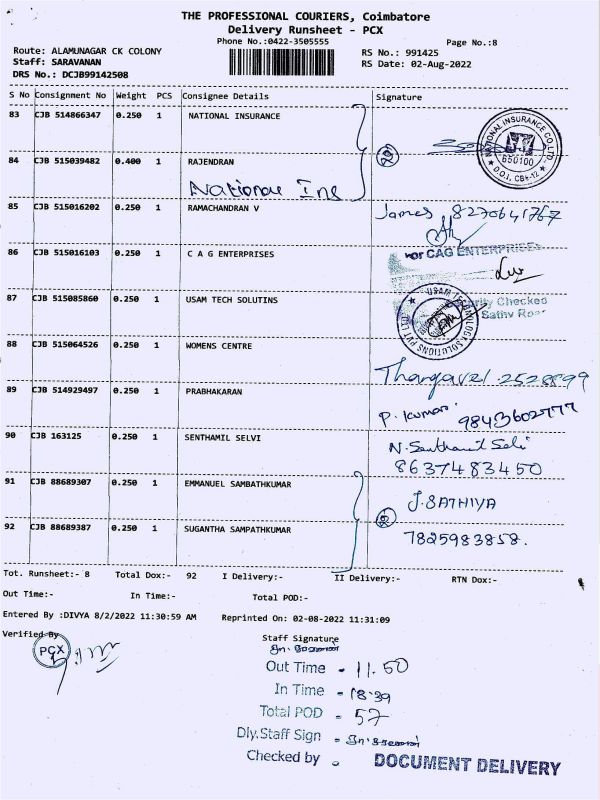 THE PROFESSIONAL COURIERS, Coimbatore
Delivery Runsheet - PCX
Phone No.:0422-3505555
Page No.:8
Route: ALAMUNAGAR CK COLONY
RS No.: 991425
Staff: SARAVANAN
RS Date: 02-Aug-2022
DRS No.: DCJB99142508
S No Consignment No Weight PCS Consignee Details Signature
83 CJB 514866347 0.250 1 NATIONAL INSURANCE
NATIONAL INSURANCE CO.LTD.
650100
D.O.I, CBE-12
84 CJB 515039482 0.400 1 RAJENDRAN
National Ins
85 CJB 515016202 0.250 1 RAMACHANDRAN V
James 8270641767
86 CJB 515016103 0.250 1 C A G ENTERPRISES
For CAG ENTERPRISES
87 CJB 515085860 0.250 1 USAM TECH SOLUTINS
USAM TECHNOLOGY SOLUTIONS PVT LTD
Security Checked
Sathy Road
88 CJB 515064526 0.250 1 WOMENS CENTRE
Thangavel. 2528899
89 CJB 514929497 0.250 1 PRABHAKARAN
P. Kumar 9843602777
90 CJB 163125 0.250 1 SENTHAMIL SELVI
N. Senthamil Selvi
8637483450
91 CJB 88689307 0.250 1 EMMANUEL SAMBATHKUMAR
J. SATHIYA
92 CJB 88689387 0.250 1 SUGANTHA SAMPATHKUMAR
7825983858.
Tot. Runsheet:- 8 Total Dox:- 92 I Delivery:- II Delivery:- RTN Dox:-
Out Time:- In Time:- Total POD:-
Entered By :DIVYA 8/2/2022 11:30:59 AM Reprinted On: 02-08-2022 11:31:09
Verified By
PCX
Staff Signature
Out Time - 11.50
In Time - 18:39
Total POD - 57
Dly.Staff Sign -
Checked by -
DOCUMENT DELIVERY